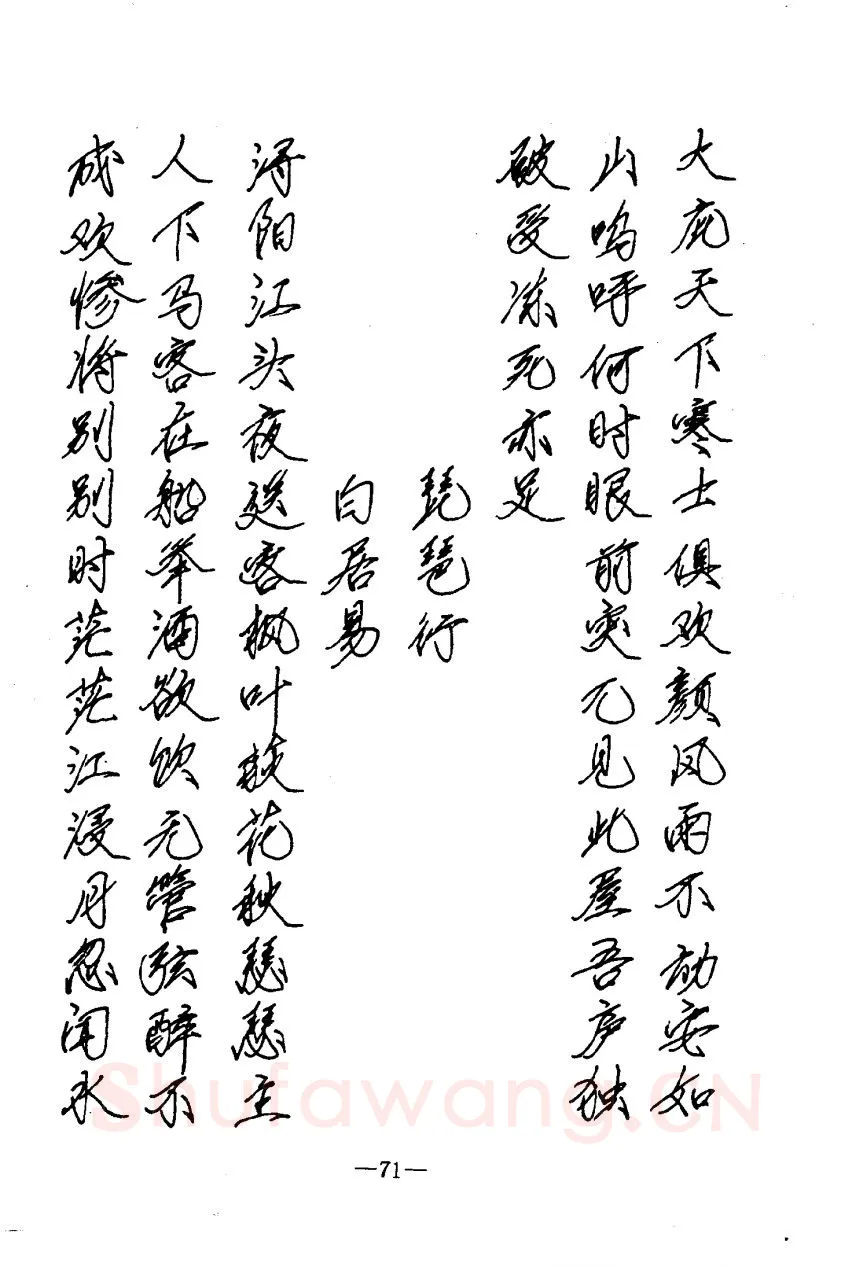 大庇天下寒士俱欢颜风雨不动安如
山呜呼何时眼前突兀见此屋吾庐独
破受冻死亦足
琵琶行
白居易
浔阳江头夜送客枫叶荻花秋瑟瑟主
人下马客在船举酒欲饮无管弦醉不
成欢惨将别别时茫茫江浸月忽闻水
—71—
Shufawang.CN